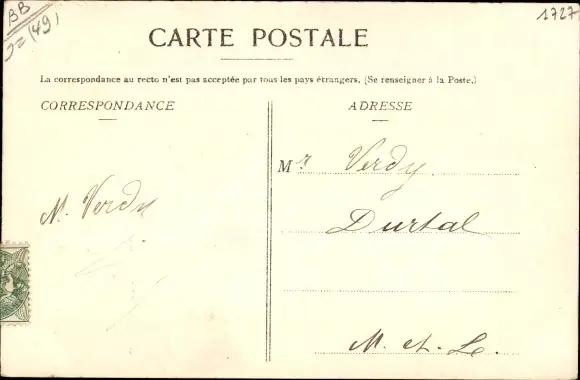 BB
(49)
1727
CARTE POSTALE
La correspondance au recto n'est pas acceptée par tous les pays étrangers. (Se renseigner à la Poste.)
CORRESPONDANCE
ADRESSE
Mr Verdy
M. Verdy
Durtal
M. et. L.